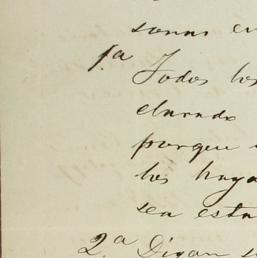 sonas en
1.ª Todos los
clarado
porque
los haya
sea esta
2.ª Digan